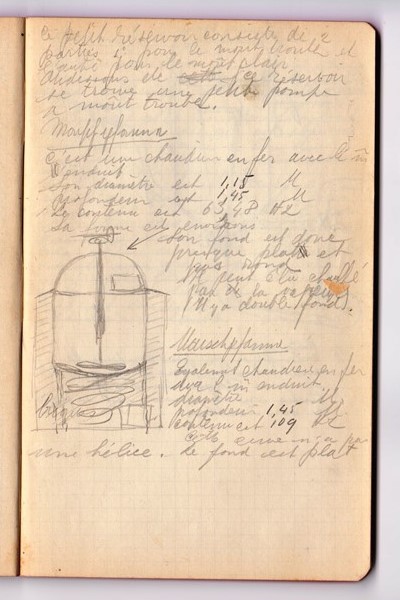 Ce petit réservoir consiste de 2
parties 1 pour le mout trouble et
l'autre pour le mout clair.
Audessous de ce réservoir
se trouve une petite pompe
a mout trouble.
C'est une chaudière en fer avec
enduit
Son diamètre est 1,15 M
profondeur est 1,45 M
Le contenu est 63,48 H2
Sa forme est environs
son fond est donc
presque plat et
rond
Il peut être chauffé
par de la vapeur
Il y a double fond.
Maischpfanne
Egalement chaudière en fer
enduit
diamètre M
profondeur 1,45
contenu est 109 H2
Cette cuve n'a pas
une hélice. Le fond est plat
briques